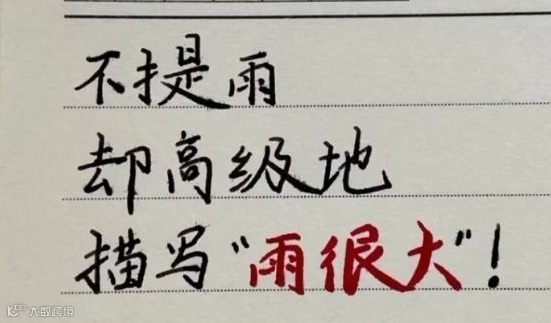 不提雨
却高级地
描写“雨很大”！
大的跨境